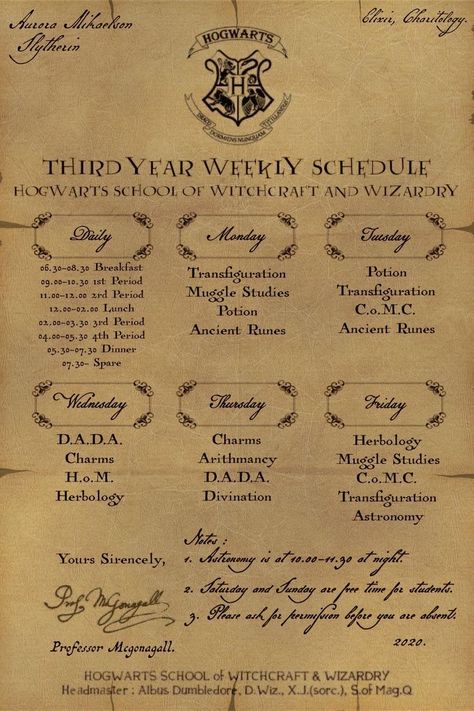 Aurora Mikaelson
Slytherin
Elixir, Charitology.
HOGWARTS
DRACO DORMIENS NUNQUAM TITILLANDUS
THIRD YEAR WEEKLY SCHEDULE
HOGWARTS SCHOOL OF WITCHCRAFT AND WIZARDRY
Daily
06.30-08.30 Breakfast
09.00-10.30 1st Period
11.00-12.00 2nd Period
12.00-02.00 Lunch
02.00-03.30 3rd Period
04.00-05.30 4th Period
05.30-07.30 Dinner
07.30- Spare
Monday
Transfiguration
Muggle Studies
Potion
Ancient Runes
Tuesday
Potion
Transfiguration
C.o.M.C.
Ancient Runes
Wednesday
D.A.D.A.
Charms
H.o.M.
Herbology
Thursday
Charms
Arithmancy
D.A.D.A.
Divination
Friday
Herbology
Muggle Studies
C.o.M.C.
Transfiguration
Astronomy
Yours Sirencely,
Prof. McGonagall
Professor Mcgonagall.
Notes :
1. Astronomy is at 10.00-11.30 at night.
2. Saturday and Sunday are free time for students.
3. Please ask for permission before you are absent.
2020.
HOGWARTS SCHOOL of WITCHCRAFT & WIZARDRY
Headmaster : Albus Dumbledore, D.Wiz., X.J.(sorc.), S.of Mag.Q